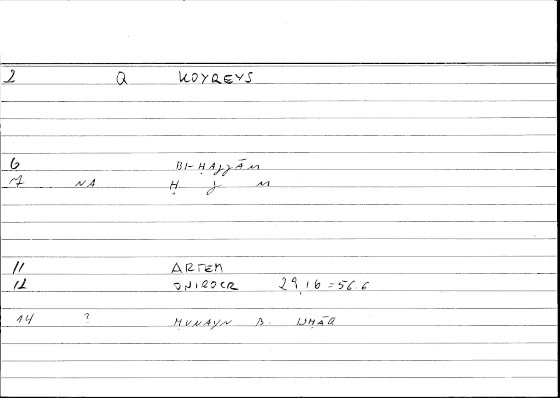 2 Q KOYREYS
6 BI-ḤAJJĀM
7 NA Ḥ J M
11 ARTEM
12 ONIROCR 29,16 = 56.6
14 ? ḤUNAYN B. ISḤĀQ